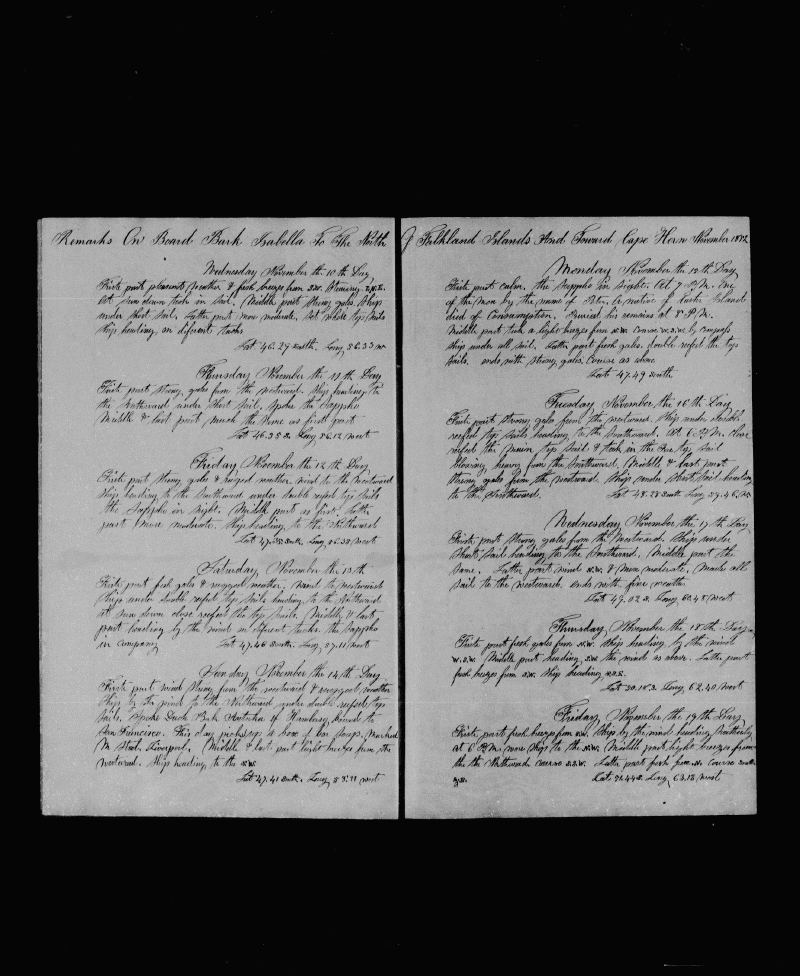 Remarks On Board Bark Isabella To The North
Wednesday November the 10th Day
First part pleasants weather & fresh breezes from S.W. Steering
At sun down took in sail. Middle part strong gales Ship
under short sail. Latter part more moderate. Set whole top sails
Ship heading on different tacks
Lat 46.29 South. Long 56.33 W
Thursday November the 11th Day
First part strong gales from the westward. Ship heading to
the Southward under short sail. Spoke the Sappho
Middle & last part much the same as first part
Lat 46.35 S. Long 56.12 West
Friday November the 12th Day
First part strong gales & ruged weather wind to the westward
Ship heading to the Southward under double reefed top sails
the Sappho in sight. Middle part as first. Latter
part more moderate. Ship heading to the Northward
Lat South Long 56.30 West
Saturday November the 13th
First part fresh gales & ruggged weather, wind to westward
Ship under double reefed top sails heading to the Northward
at sun down close reefed the top sails. Middle & last
part heading by the wind on different tacks. the Sappho
in company Lat 47.46 South. Long 57.11 West
Sunday November the 14th Day
First part wind strong from the westward & ruggged weather
Ship by the wind to the Northward under double reefed top
sails. Spoke Bark of Hamburg, bound to
San Francisco. This day picked up a box of soap. Marked
Liverpool. Middle & last part light breezes from the
westward. Ship heading to the S.W.
Lat 47.41 South. Long 58.11 West
of Falkland Islands And Toward Cape Horn November 1852
Monday November the 15th Day
First part calm. the Sappho in sight. At 7 P.M. One
of the men by the name of Peter, a native of Islands
died of Consumption. Buried his remains at 8 P.M.
Middle part took a light breeze from N.W. Course W.S.W. by compass
Ship under all sail. Latter part fresh gales. double reefed the top
sails. ends with strong gales. Course as above
Lat 47.49 South
Tuesday November the 16th Day
First part strong gales from the westward. Ship under double
reefed top sails heading to the Southward. At 6 P.M. close
reefed the main top sail & took in the fore top sail
blowing heavy from the Southward. Middle & last part
strong gales from the westward. Ship under short sail heading
to the Southward. Lat 48.28 South Long 59.46 W
Wednesday November the 17th Day
First part strong gales from the Westward. Ship under
short sail heading to the Southward. Middle part the
same. Latter part wind N.W. & more moderate, made all
sail to the westward. ends with fine weather
Lat 49.02 S. Long 60.48 West
Thursday November the 18th Day
First part fresh gales from N.W. Ship heading by the wind
W.S.W. Middle part heading S.W. the wind as above. Latter part
fresh breezes from S.W. Ship heading
Lat 50.18 S Long 62.40 West
Friday November the 19th Day
First part fresh breezes from S.W. Ship by the wind heading Southerly
at 6 P.M. wore Ship to the N.W. Middle part light breezes from
the the Northward course S.S.W. Latter part fresh from N. Course South
Lat 51.44 S. Long 63.13 West